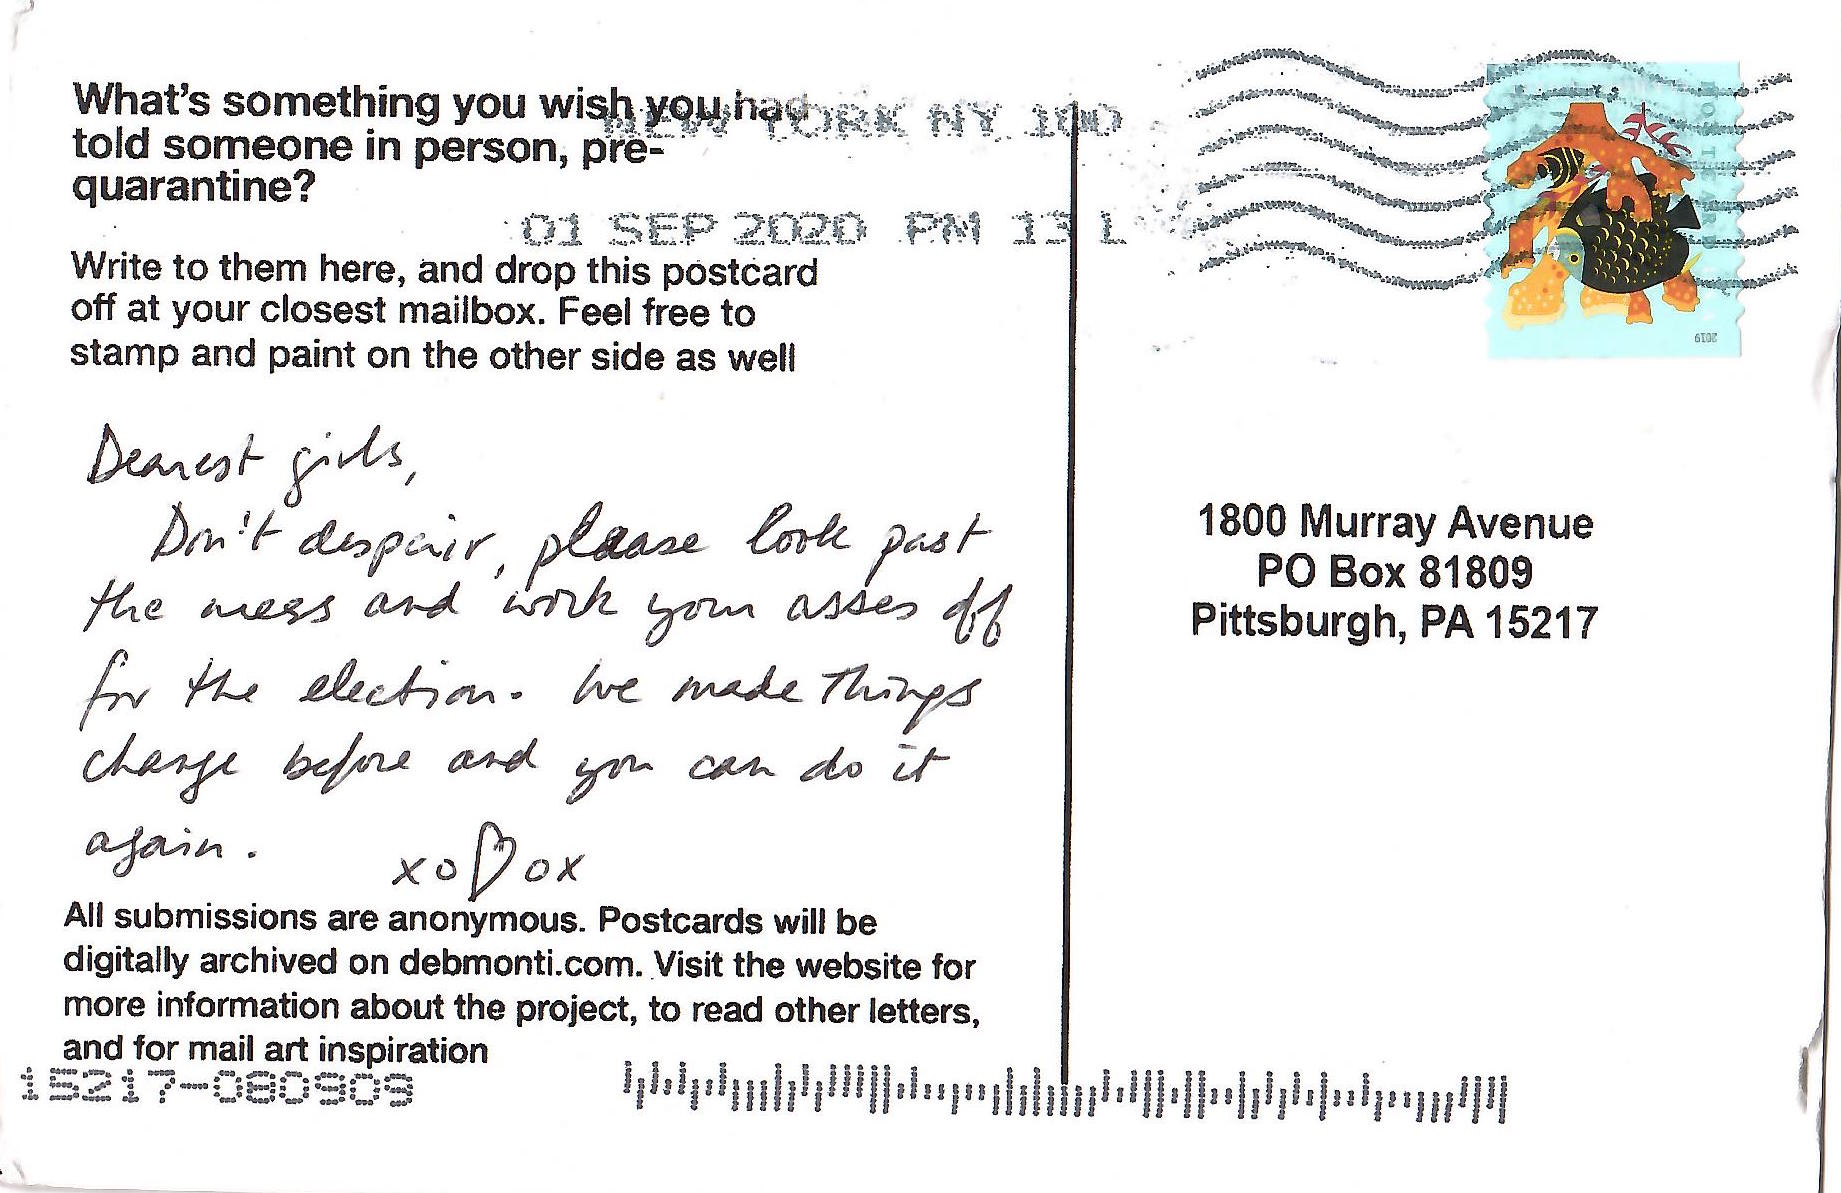 What's something you wish you had
told someone in person, pre-
quarantine?
NEW YORK NY 100
01 SEP 2020 PM 13 L
Write to them here, and drop this postcard
off at your closest mailbox. Feel free to
stamp and paint on the other side as well
Dearest girls,
Don't despair, please look past
the mess and work your asses off
for the election. We made things
change before and you can do it
again.
xo♡ox
All submissions are anonymous. Postcards will be
digitally archived on debmonti.com. Visit the website for
more information about the project, to read other letters,
and for mail art inspiration
15217-080909
POSTCARD
2019
1800 Murray Avenue
PO Box 81809
Pittsburgh, PA 15217